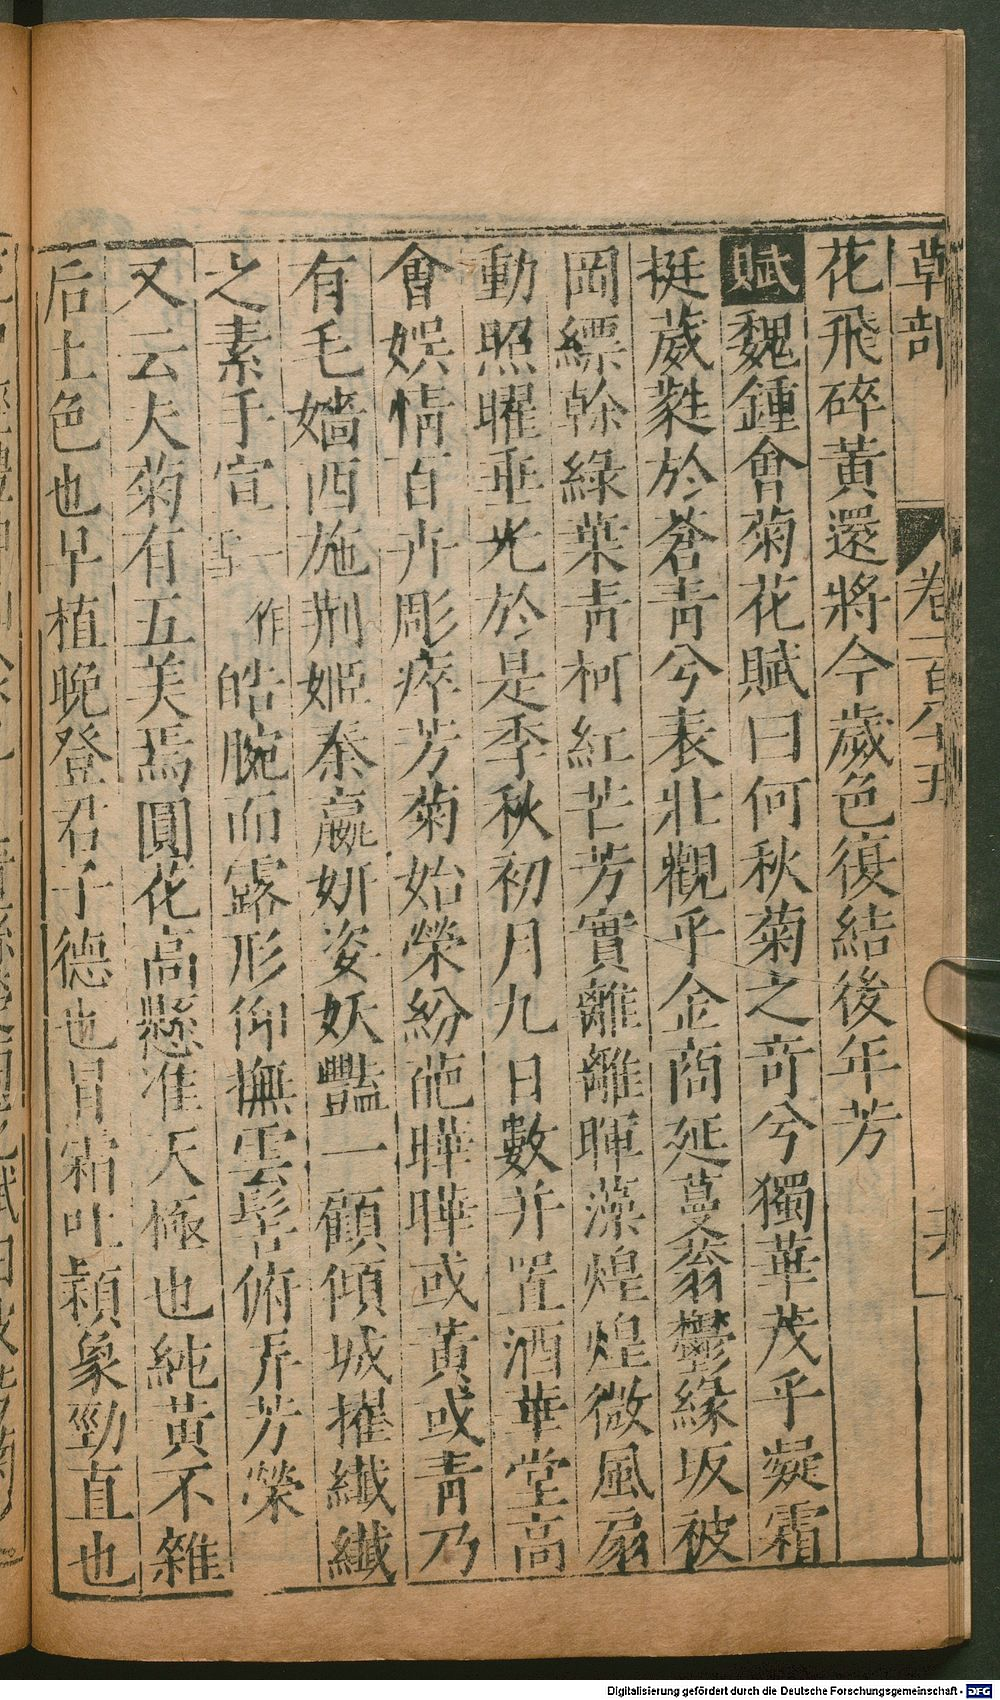 草部 卷一百八十五
花飛碎黃還將今歲色復結後年芳
賦魏鍾會菊花賦曰何秋菊之竒兮獨華茂乎凝霜
挺葳蕤於蒼青兮表壯觀乎金商延蔓蓊鬱緣坂被
岡縹幹綠葉青柯紅芒芳實離離暉藻煌煌微風扇
動照曜垂光於是季秋初月九日數并置酒華堂高
會娛情百卉彫瘁芳菊始榮紛葩曄曄或黃或青乃
有毛嬙西施荆姬秦嬴妍姿妖豔一顧傾城擢纖纖
之素手宣一作皓腕而露形仰撫雲髻俯弄芳榮
又云夫菊有五美焉圓花高懸准天極也純黃不雜
后土色也早植晚登君子德也冒霜吐穎象勁直也
Digitalisierung gefördert durch die Deutsche Forschungsgemeinschaft - DFG